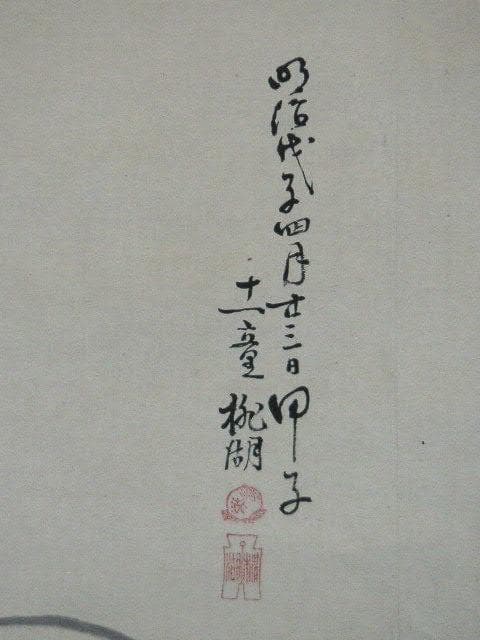 明治戊子四月廿三日甲子
十一童桃湖